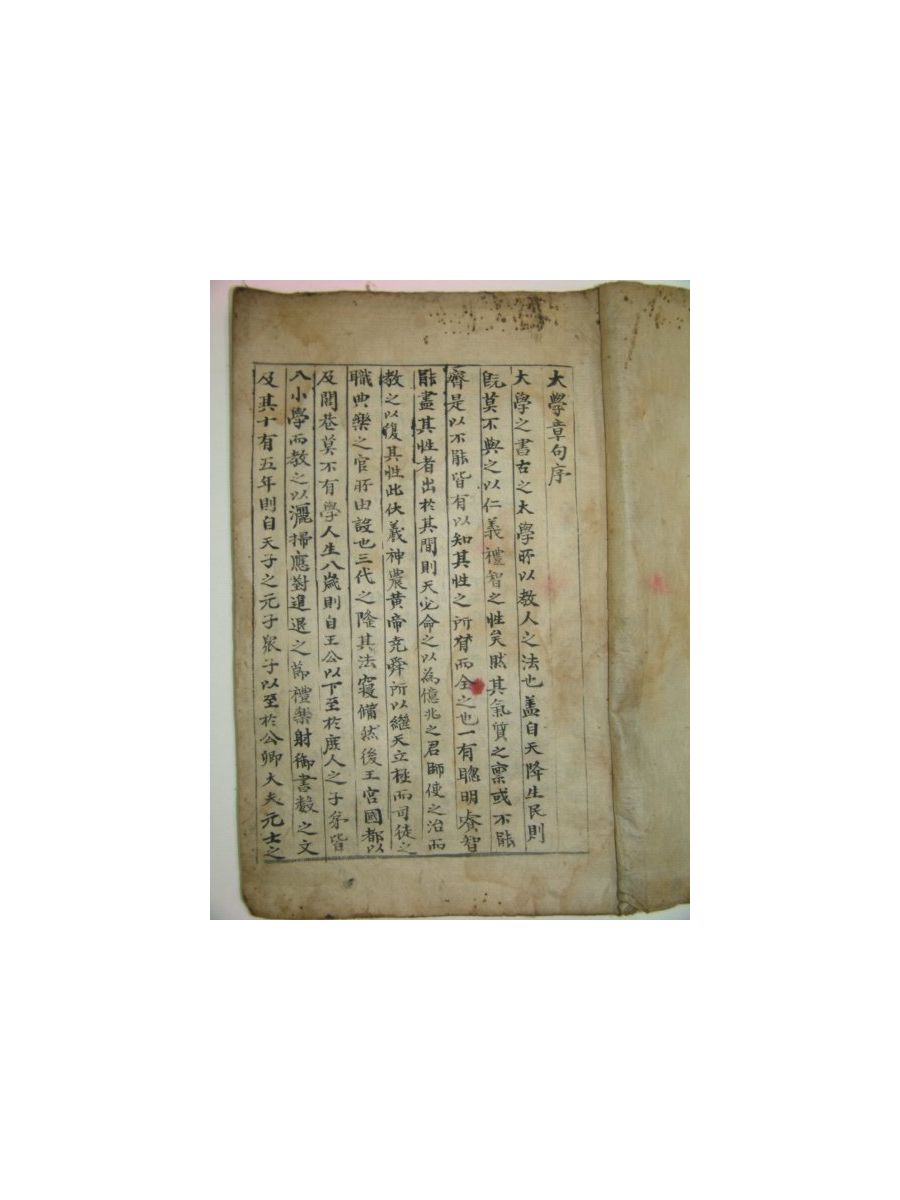 大學章句序
大學之書古之大學所以教人之法也盖自天降生民則
既莫不與之以仁義禮智之性矣然其氣質之稟或不能
齊是以不能皆有以知其性之所有而全之也一有聰明睿智
能盡其性者出於其間則天必命之以為億兆之君師使之治而
教之以復其性此伏羲神農黄帝尭舜所以繼天立極而司徒之
職典樂之官所由設也三代之隆其法寖備然後王宮國都以
及閭巷莫不有學人生八歲則自王公以下至於庶人之子弟皆
入小學而教之以灑掃應對進退之節禮樂射御書數之文
及其十有五年則自天子之元子衆子以至於公卿大夫元士之